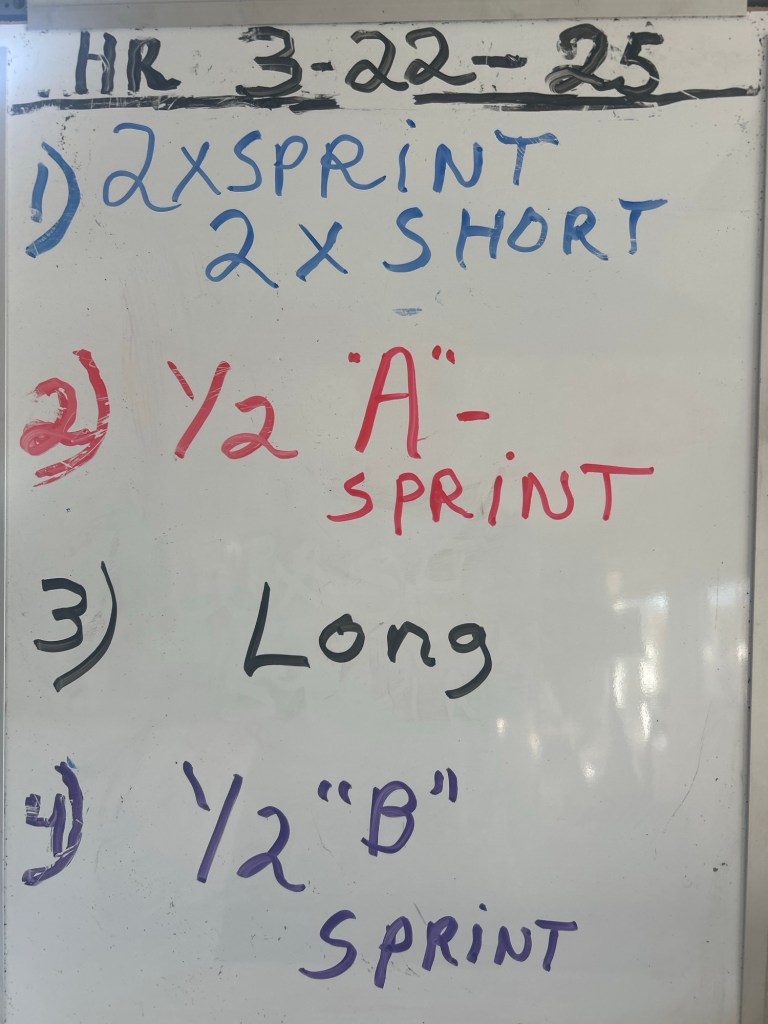 HR 3-22-25
1) 2XSPRiNT
2 X SHORT
2) 1/2 "A"-
SPRiNT
3) Long
4) 1/2 "B"
SPRiNT